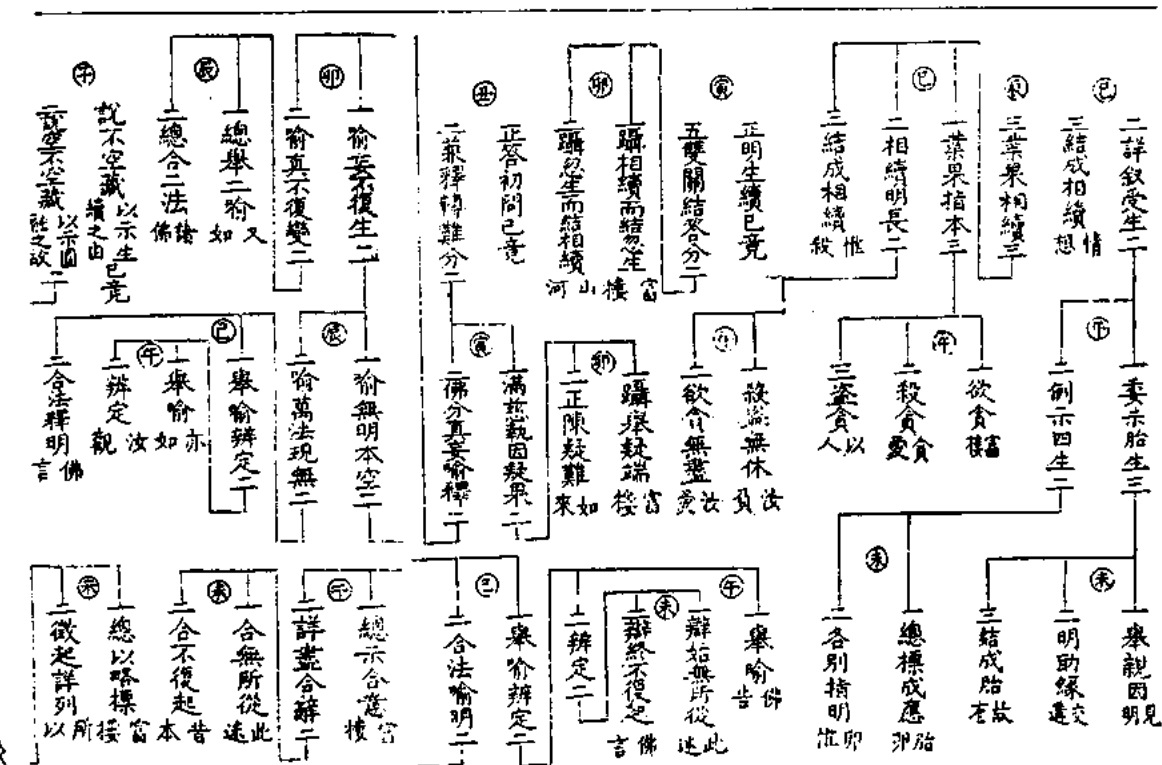 ㊁
二詳叙受生二
三結成相續 情想
㊍
三業果相續三
㊁
一業果指本三
二相續明長二
三結成相續 惟殺
㊢
正明生續已竟
五雙關結答分二
㊞
一躡相續而結忽生 富樓
二躡忽生而結相續 山河
㊄
正答初問已竟
二兼釋轉難分二
㊞
一喻妄不復生二
二喻真不復變二
辰
一總舉二喻 又如
二總合二法 諸佛
子
說不空藏以示生續之由已竟
二說空不空藏以示圓融之故二
午
一委示胎生三
二例示四生二
午
一欲貪 富樓
二殺貪 貪愛
三盜貪 以人
午
一殺盜無休 汝負
二欲貪無盡 汝愛
卯
一躡舉疑端 富樓
二正陳疑難 如來
寅
一滿慈執因疑果二
二佛分真妄喻釋二
辰
一喻無明本空二
二喻萬法現無二
巳
一舉喻辨定二
午
一舉喻 亦如
二辨定 汝觀
二合法釋明 佛言
未
一舉親因 見明
二明助緣 交遘
三結成胎 故有
未
一總標成應 胎卵
二各別指明 卵惟
午
一舉喻 佛告
二辨定二
未
一辯始無所從 此迷
二辯終不復起 佛言
巳
一舉喻辨定二
二合法喻明二
午
一總示合意 富樓
二詳盡合辭二
未
一合無所從 此迷
二合不復起 昔本
未
一總以略標 富樓
二徵起詳列 所以